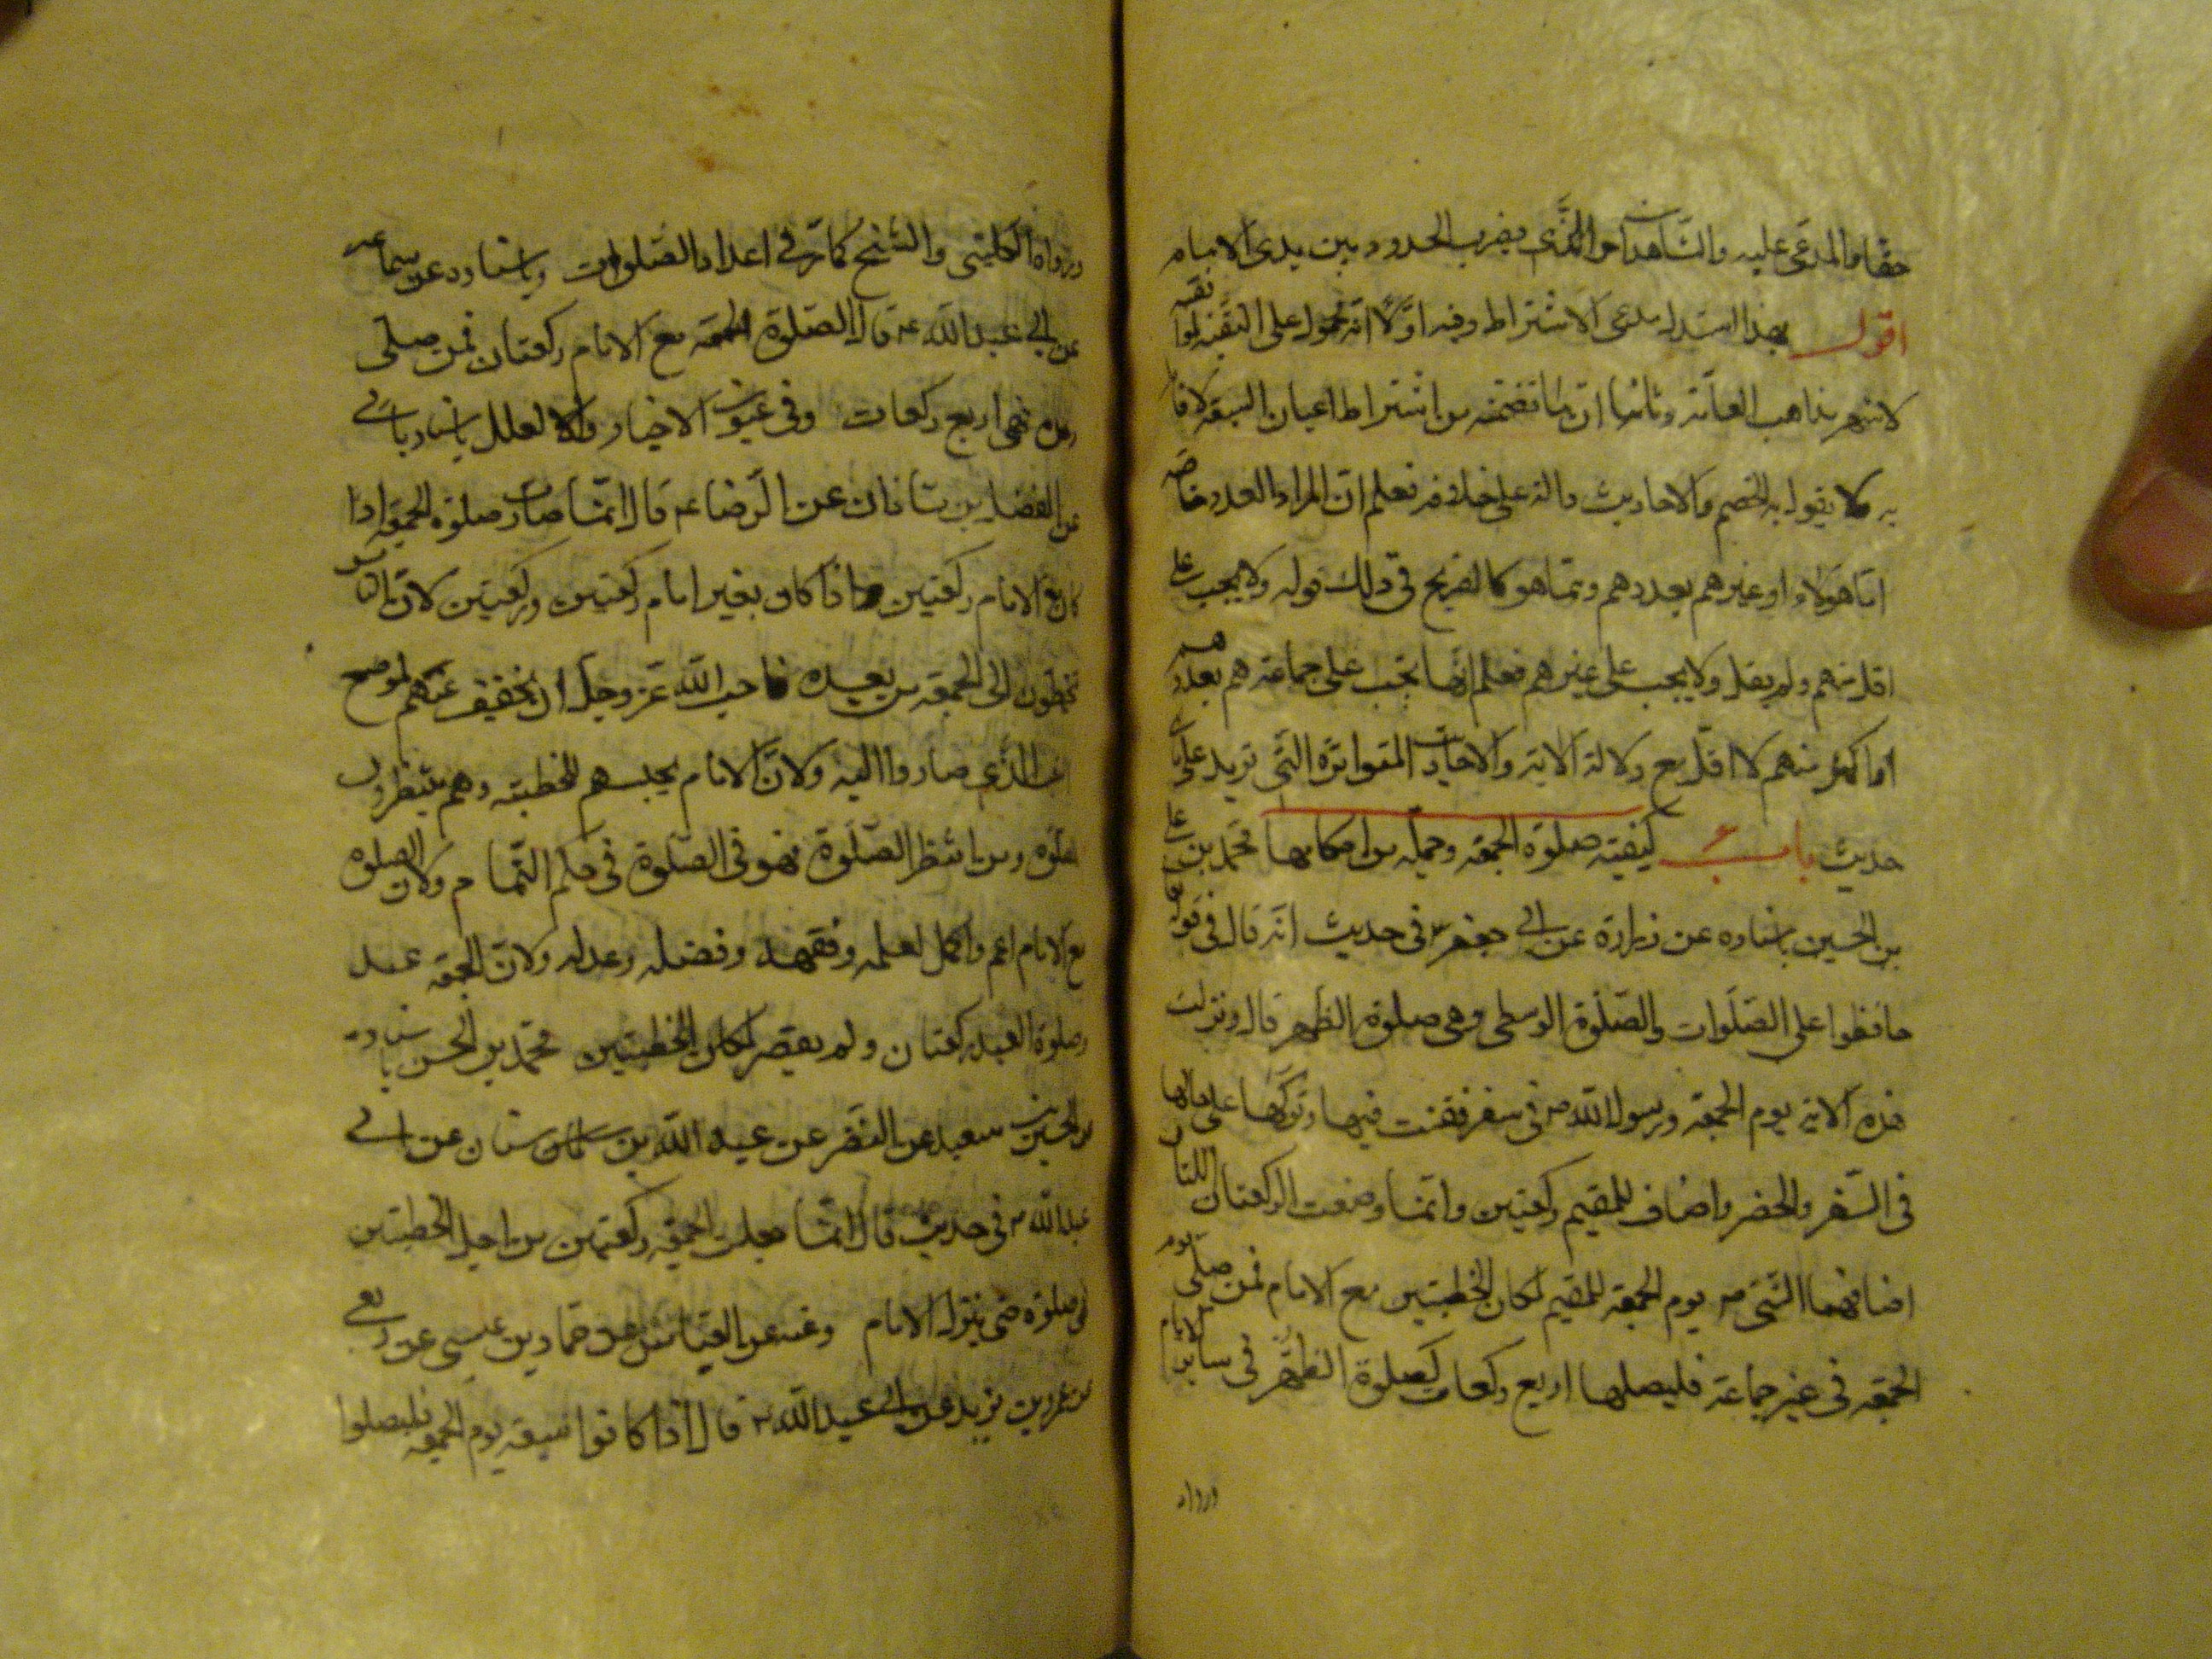 حقا والمدعى عليه والشاهدان والذى يضرب الحدود بين يدى الامام
اقول بهذا استدل مدعى الاشتراط وفيه اولا انه محمول على التقية لموافقته
لاشهر مذاهب العامة وثانيا ان ما تضمنه من اشتراط اعيان السبعة لا قايل
به ولا يقول به الخصم والاحاديث دالة على خلافه فعلم ان المراد العدد خاصه
اما هؤلاء او غيرهم بعددهم ومما هو كالصريح فى ذلك قوله ولا يجب على
اقل منهم ولم يقل ولا يجب على غيرهم فعلم انها يجب على جماعة هم بعددهم
او اكثر منهم لا اقل مع دلالة الاية والاحاديث المتواترة التى تزيد على
حديث باب كيفية صلوة الجمعه وجملة من احكامها محمد بن على
بن الحسين باسناده عن زرارة عن ابى جعفر ع فى حديث انه قال فى قوله تعالى
حافظوا على الصلوات والصلوة الوسطى وهى صلوة الظهر قال ونزلت
هذه الاية يوم الجمعة ورسول الله ص فى سفر فقنت فيها وتركها على حالها
فى السفر والحضر واضاف للمقيم ركعتين وانما وضعت الركعتان اللتان
اضافهما النبى ص يوم الجمعة للمقيم لمكان الخطبتين مع الامام فمن صلى يوم
الجمعه فى غير جماعة فليصلها اربع ركعات كصلوة الظهر فى ساير الايام
ورواه
ورواه الكلينى والشيخ كما مر فى اعداد الصلوات وباسناده عن سماعه
عن ابى عبد الله ع قال الصلوة الجمعه مع الامام ركعتان فمن صلى
وحده فهى اربع ركعات وفى عيون الاخبار والعلل باسناد ياتى
عن الفضل بن شاذان عن الرضا ع قال انما صارت صلوة الجمعة اذا
كان مع الامام ركعتين واذا كان بغير امام ركعتين وركعتين لان الناس
يتخطون الى الجمعة من بعد فاحب الله عز وجل ان يخفف عنهم لموضع
التعب الذى صاروا اليه ولان الامام يحبسهم للخطبة وهم ينتظرون
للصلوة ومن انتظر الصلوة فهو فى الصلوة فى حكم التمام ولان الصلوة
مع الامام اتم واكمل لعلمه وفقهه وفضله وعدله ولان الجمعة عيد
وصلوة العيد ركعتان ولم يقصر لمكان الخطبتين محمد بن الحسن باسناده
عن الحسين بن سعيد عن النضر عن عبد الله بن سنان عن ابى
عبد الله ع فى حديث قال انما جعلت الجمعة ركعتين من اجل الخطبتين
فهى صلوة حتى ينزل الامام وعنه عن العباس عن حماد بن عيسى عن ربعى
عن عمر بن يزيد عن ابى عبد الله ع قال اذا كانوا سبعة يوم الجمعه فليصلوا